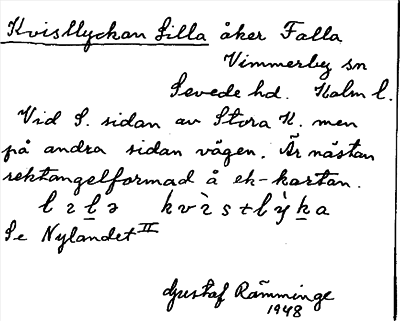 Kvistlyckan Lilla åker Falla
Vimmerby sn
Sevede hd. Kalm l.
Vid S. sidan av Stora K. men
på andra sidan vägen. Är nästan
rektangelformad å ek-kartan.
Se Nylandet II
Gustaf Rämminge
1948